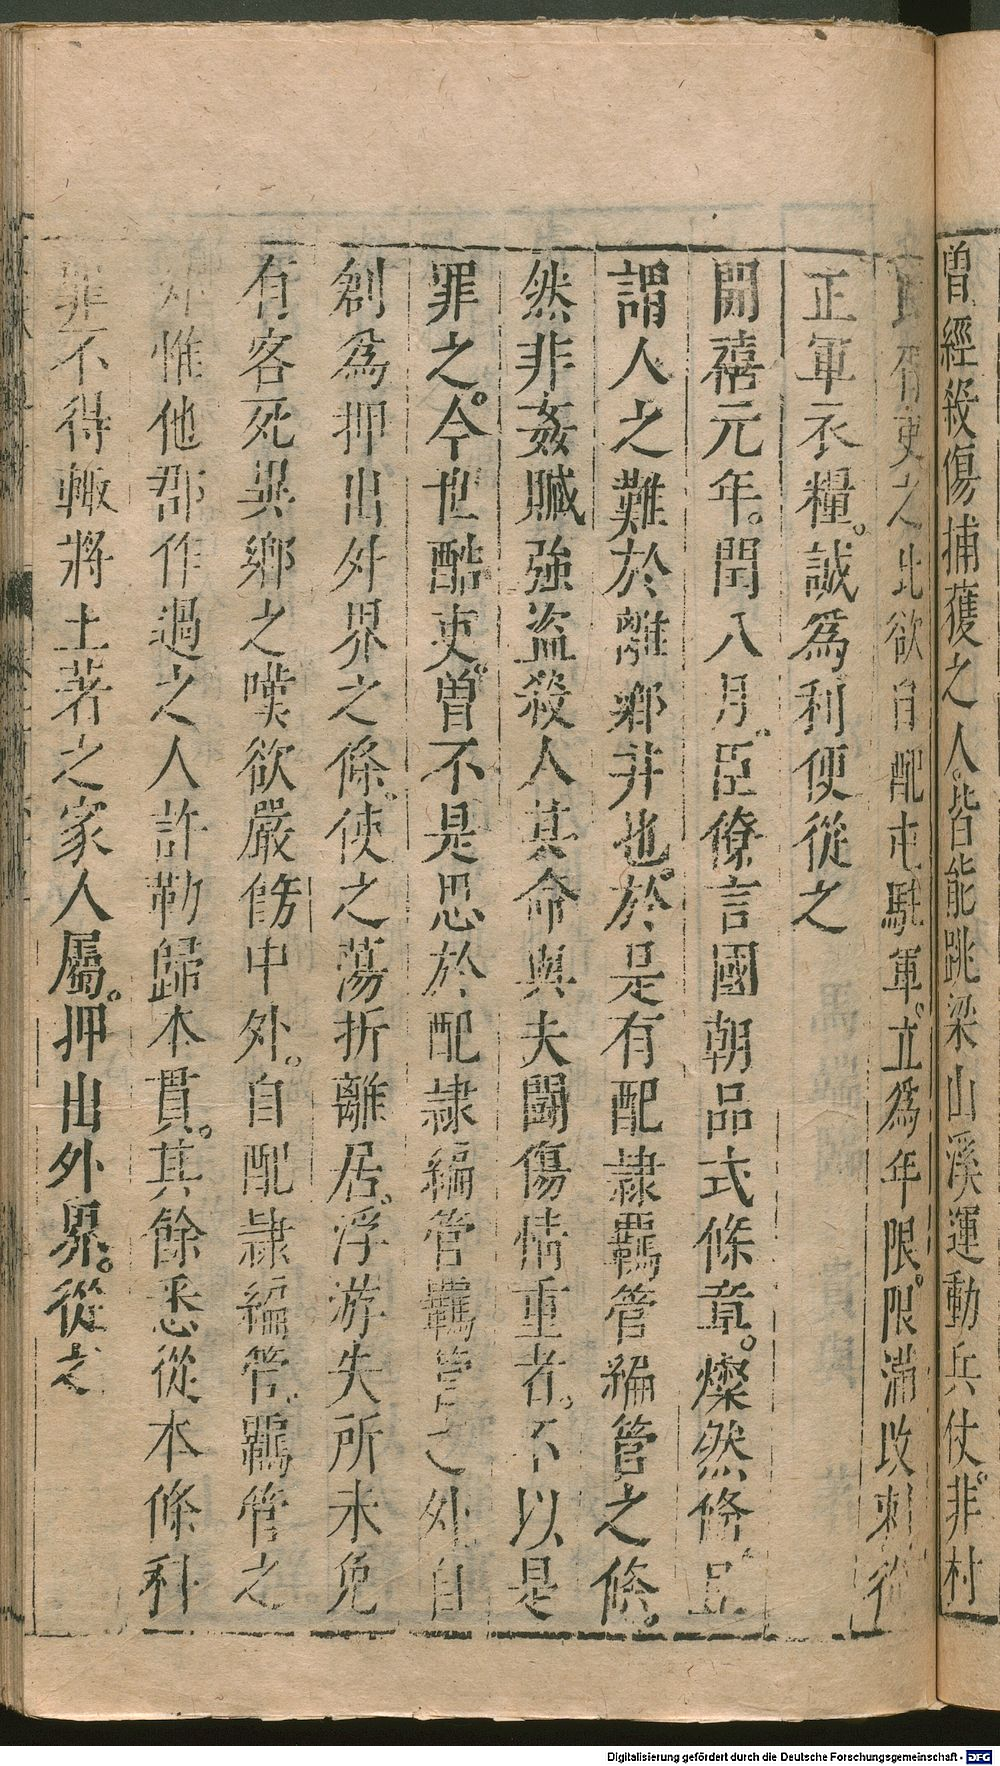 曾經殺傷捕獲之人。皆能跳梁山溪運動兵仗。非村
民胥吏之比欲自配屯駐軍。立爲年限。限滿改刺從
正軍衣糧。誠爲利便從之
開禧元年。閏八月。臣僚言國朝品式條章。燦然備具
謂人之難於離鄉井也。於是有配隷羈管編管之條。
然非姦贓強盜殺人其命與夫鬬傷情重者。不以是
罪之。今世酷吏。曽不是思於配隷編管羈管之外自
創爲押出外界之條。使之蕩折離居。浮游失所未免
有客死異鄉之嘆欲嚴飭中外。自配隷編管羈管之
外惟他郡作過之人許勒歸本貫。其餘悉從本條科
罪不得輙將土著之家人屬。押出外界。從之
Digitalisierung gefördert durch die Deutsche Forschungsgemeinschaft - DFG